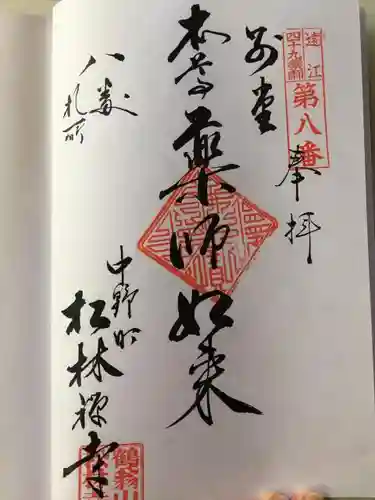 遠江
四十九薬師
第八番
奉拝
別堂
本尊薬師如来
八番
札所
中野町
松林禅寺
鶴翁山